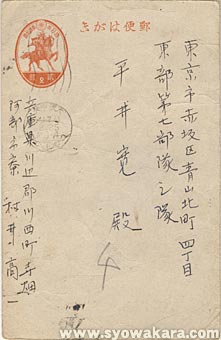 郵便はがき
東京市赤坂区青山北町四丁目
東部第七部隊ミ隊
平井寛殿
兵庫県川辺郡川西町寺畑
阿部方寮
村井高一
www.syowakara.com